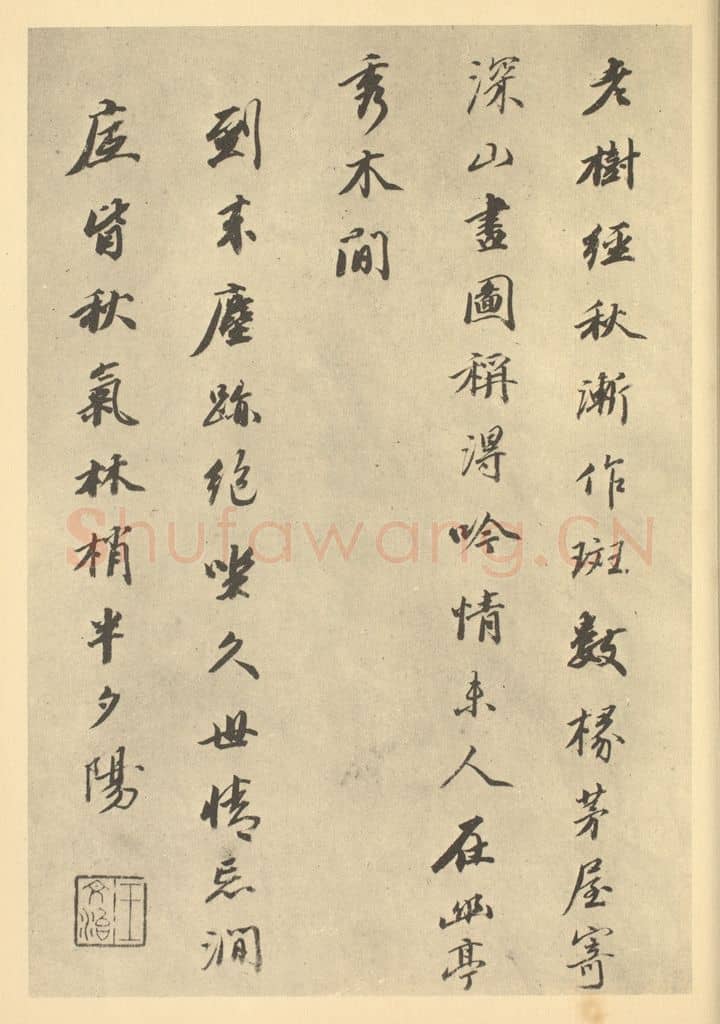 老樹經秋漸作斑數椽茅屋寄
深山畫圖稱得吟情未人在幽亭
秀木間
到來塵跡絕坐久世情忘澗
底皆秋氣林梢半夕陽
王文治
Shufawang.CN